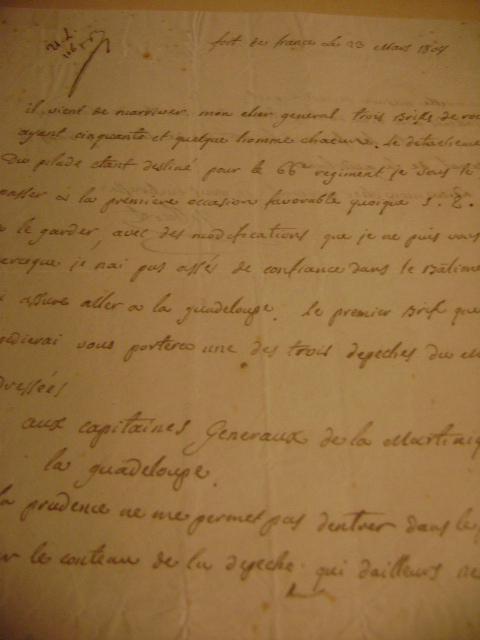 fort de france le 23 Mars 1807
il vient de marriver, mon cher general trois Briks de
ayant cinquante et quelque homme chacune. Le detacheme
Du pilade etant destiné pour le 66e regiment je vais le
passer a la premiere occasion favorable quoique S. E.
le garder, avec des modifications que je ne puis vous
je nai pas assés de confiance dans le Batime
assure aller a la guadeloupe. Le premier Brik que
edierai vous portera une des trois depeches du
dressées
aux capitaines Generaux de la Martiniq
la guadeloupe.
la prudence ne me permet pas dentrer dans le
le contenu de la depeche qui dailleurs ne